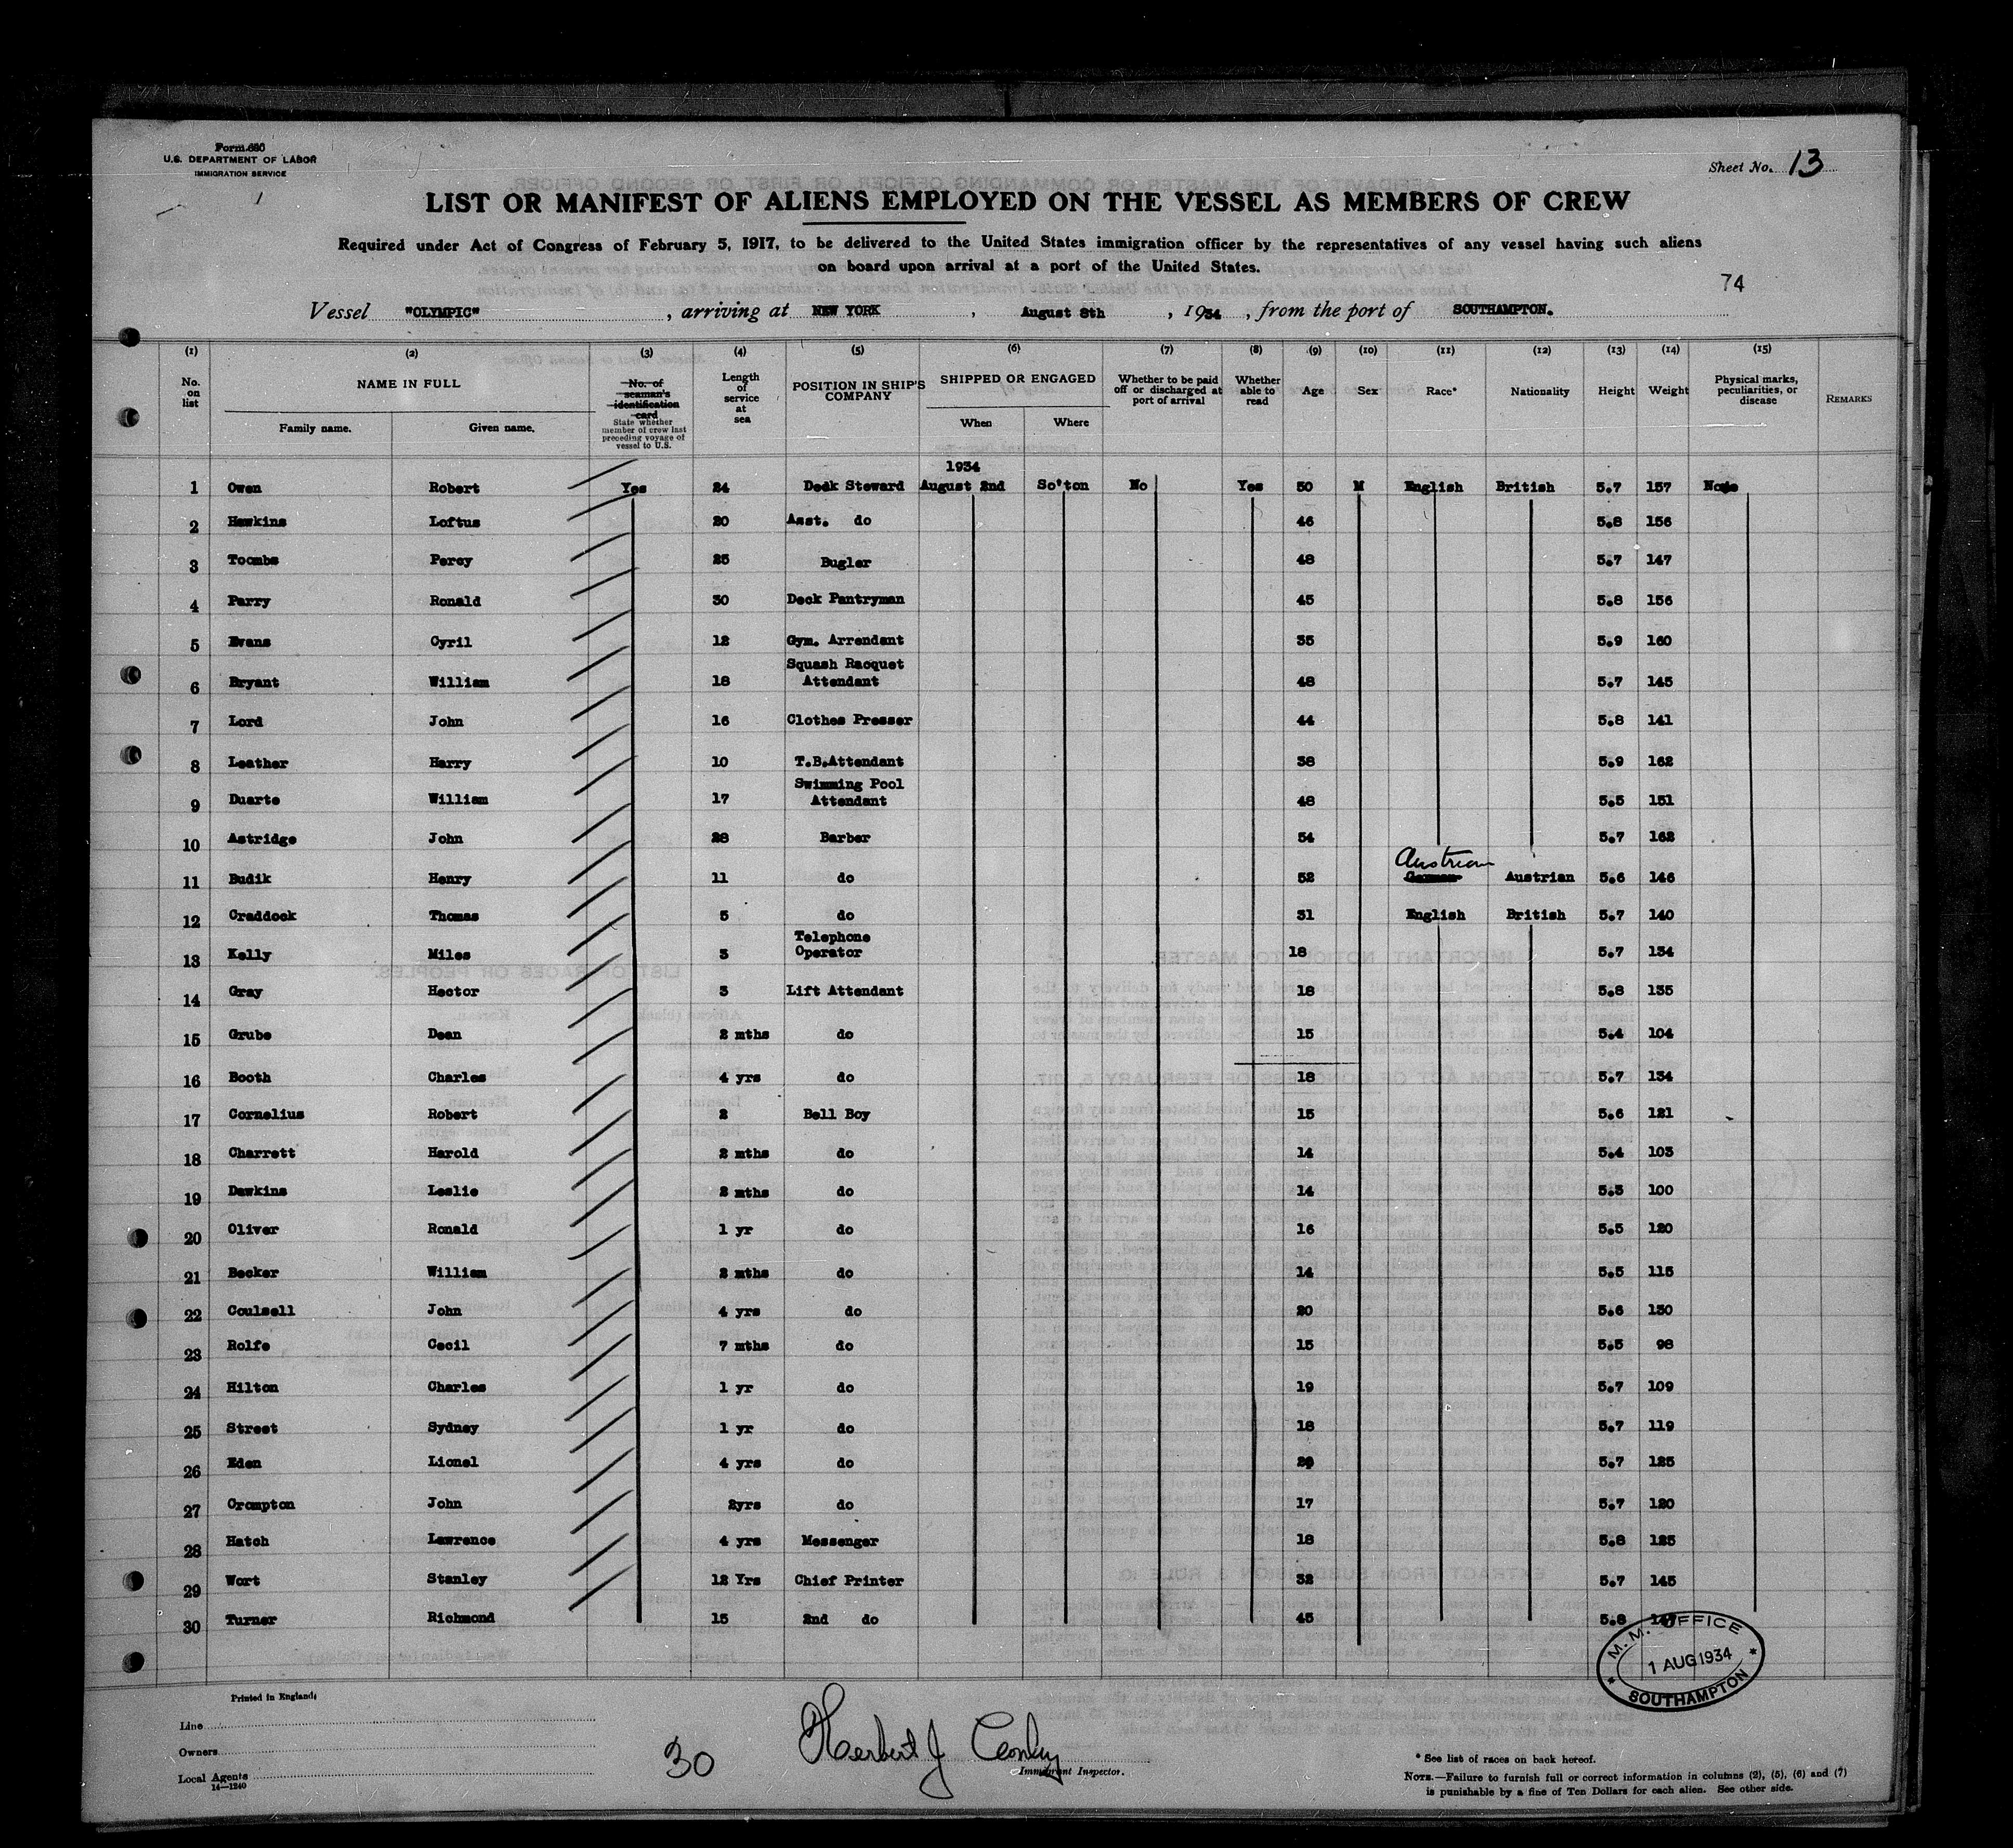 Form 680
U.S. DEPARTMENT OF LABOR
IMMIGRATION SERVICE
Sheet No. 13
LIST OR MANIFEST OF ALIENS EMPLOYED ON THE VESSEL AS MEMBERS OF CREW
Required under Act of Congress of February 5, 1917, to be delivered to the United States immigration officer by the representatives of any vessel having such aliens
on board upon arrival at a port of the United States.
74
Vessel "OLYMPIC", arriving at NEW YORK, August 8th, 1934, from the port of SOUTHAMPTON.
(1) (2) (3) (4) (5) (6) (7) (8) (9) (10) (11) (12) (13) (14) (15)
No. on list
NAME IN FULL
Family name. Given name.
No. of seaman's identification card
State whether member of crew last preceding voyage of vessel to U.S.
Length of service at sea
POSITION IN SHIP'S COMPANY
SHIPPED OR ENGAGED
When Where
Whether to be paid off or discharged at port of arrival
Whether able to read
Age
Sex
Race*
Nationality
Height
Weight
Physical marks, peculiarities, or disease
REMARKS
1934
1 Owen Robert Yes 24 Deck Steward August 2nd So'ton No Yes 50 M English British 5.7 157 None
2 Hawkins Loftus 20 Asst. do 46 5.8 156
3 Toombs Percy 25 Bugler 48 5.7 147
4 Parry Ronald 30 Deck Pantryman 45 5.8 156
5 Evans Cyril 12 Gym. Arrendant 35 5.9 160
6 Bryant William 18 Squash Racquet Attendant 48 5.7 145
7 Lord John 16 Clothes Presser 44 5.8 141
8 Leather Harry 10 T.B.Attendant 38 5.9 162
9 Duarte William 17 Swimming Pool Attendant 48 5.5 151
10 Astridge John 28 Barber 54 5.7 162
Austrian
11 Budik Henry 11 do 52 German Austrian 5.6 146
12 Craddock Thomas 5 do 31 English British 5.7 140
13 Kelly Miles 3 Telephone Operator 18 5.7 134
14 Gray Hector 3 Lift Attendant 18 5.8 135
15 Grube Dean 2 mths do 15 5.4 104
16 Booth Charles 4 yrs do 18 5.7 134
17 Cornelius Robert 2 Bell Boy 15 5.6 121
18 Charrett Harold 2 mths do 14 5.4 103
19 Dawkins Leslie 2 mths do 14 5.3 100
20 Oliver Ronald 1 yr do 16 5.5 120
21 Becker William 2 mths do 14 5.5 115
22 Coulsell John 4 yrs do 20 5.6 130
23 Rolfe Cecil 7 mths do 15 5.5 98
24 Hilton Charles 1 yr do 19 5.7 109
25 Street Sydney 1 yr do 18 5.7 119
26 Eden Lionel 4 yrs do 5.7 125
27 Crompton John 2yrs do 17 5.7 120
28 Hatch Lawrence 4 yrs Messenger 18 5.8 125
29 Wort Stanley 12 Yrs Chief Printer 32 5.7 145
30 Turner Richmond 15 2nd do 45 5.8 147
M. M. OFFICE
1 AUG 1934
SOUTHAMPTON
Printed in England;
Line
Owners
Local Agents
14—1240
30
Herbert J Conley
Immigrant Inspector.
* See list of races on back hereof.
NOTE.—Failure to furnish full or correct information in columns (2), (5), (6) and (7)
is punishable by a fine of Ten Dollars for each alien. See other side.